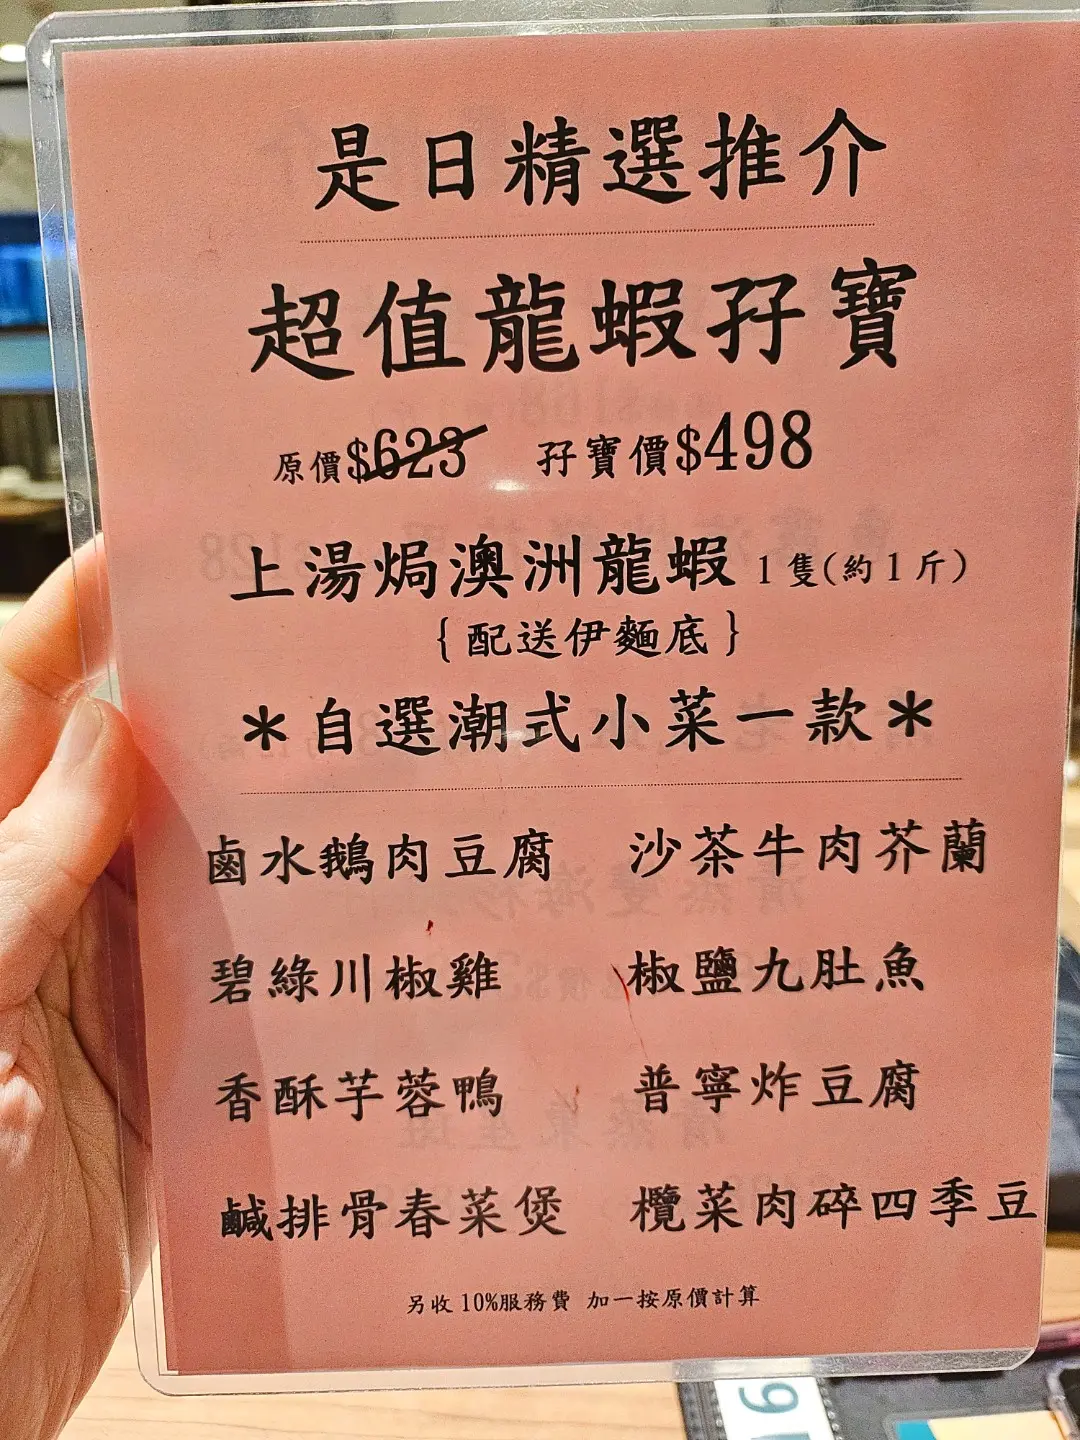 是日精選推介
超值龍蝦孖寶
原價$623 孖寶價$498
上湯焗澳洲龍蝦 1隻(約1斤)
{配送伊麵底}
*自選潮式小菜一款*
鹵水鵝肉豆腐 沙茶牛肉芥蘭
碧綠川椒雞 椒鹽九肚魚
香酥芋蓉鴨 普寧炸豆腐
鹹排骨春菜煲 欖菜肉碎四季豆
另收10%服務費 加一按原價計算